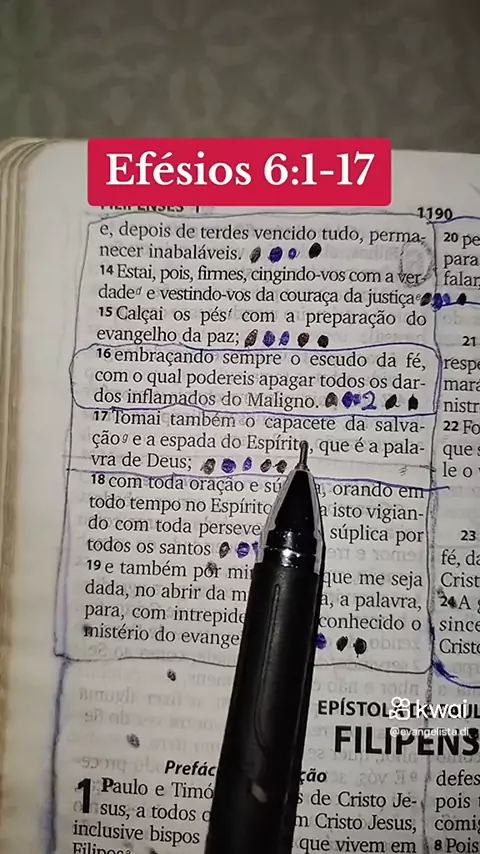 Efésios 6:1-17
FILIPENSES 1
1190
e, depois de terdes vencido tudo, perma-
necer inabaláveis.
14 Estai, pois, firmes, cingindo-vos com a ver-
daded e vestindo-vos da couraça da justiçae
15 Calçai os pésf com a preparação do
evangelho da paz;
16 embraçando sempre o escudo da fé,
com o qual podereis apagar todos os dar-
dos inflamados do Maligno.
17 Tomai também o capacete da salva-
çãog e a espada do Espírito, que é a pala-
vra de Deus;
18 com toda oração e sú a, orando em
todo tempo no Espírito a isto vigian-
do com toda perseve súplica por
todos os santos
19 e também por mi que me seja
dada, no abrir da m a, a palavra,
para, com intrepide conhecido o
mistério do evange
EPÍSTOL UL
FILIPENS
Prefác ção
1 Paulo e Timó s de Cristo Je-
sus, a todos o m Cristo Jesus,
inclusive bispos que vivem em
Filipos
20 pe
para
falar
21
respe
mará
nistr
22 Fo
que s
le o
23
fé, da
Crist
24 A g
since
Cristo
defes
pois
comig
8 Pois
kwai
@evangelista.di